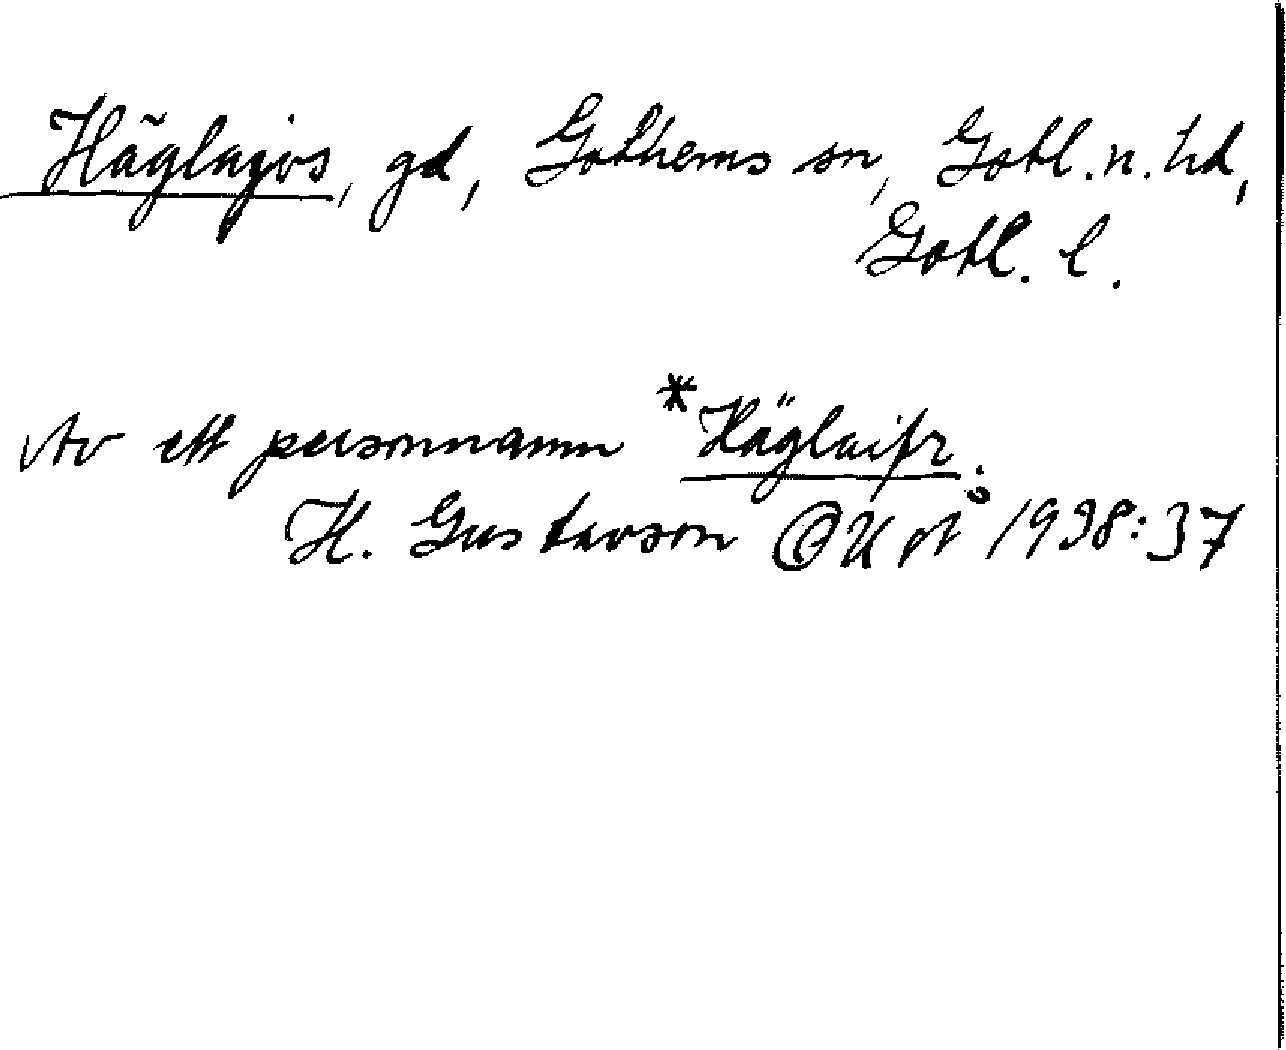 Häglajvs, gd, Gothems sn, Gotl. n. hd,
Gotl. l.
Av ett personnamn *Häglaifr.
H. Gustavson 1938:37